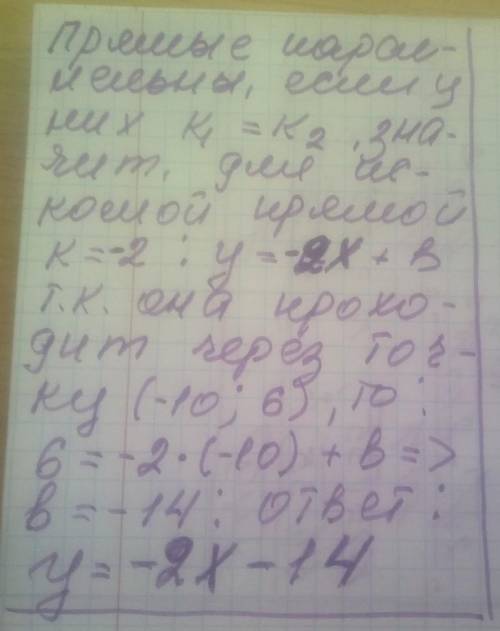 Прямые парал-
лельны, если у
них К₁ = К₂, зна-
чит, для ис-
комой прямой
К = -2 : у = -2х + в
т.к. она прохо-
дит через точ-
ку (-10; 6), то :
6 = -2 · (-10) + в =>
в = -14; ответ:
у = -2х - 14